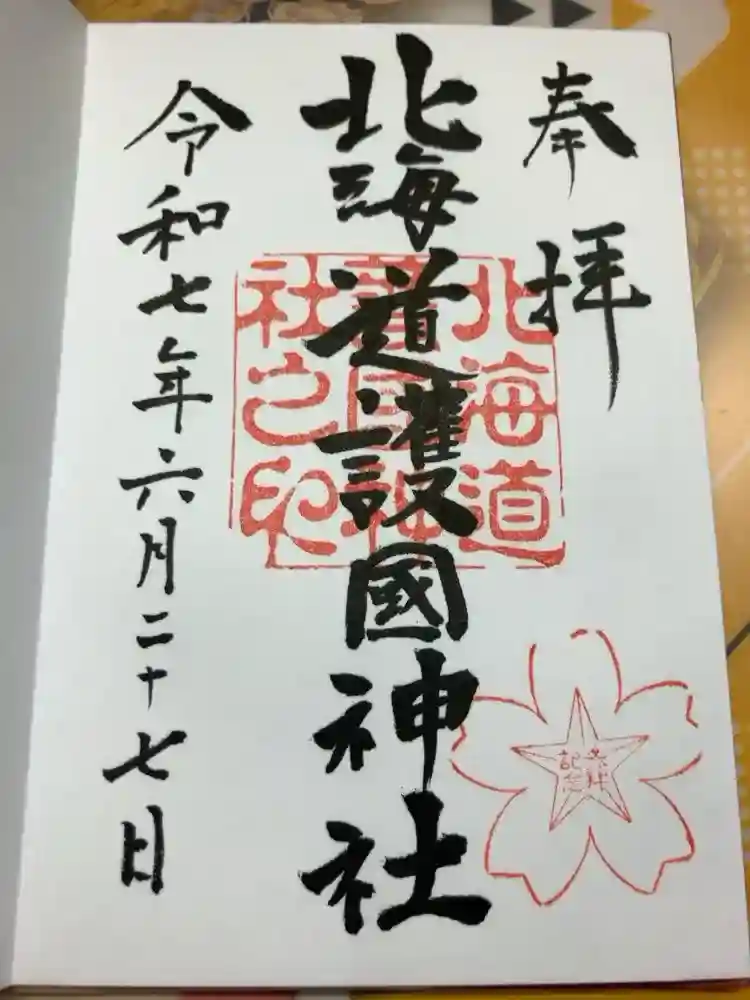 奉拝
北海道護國神社
北海道
護國神
社之印
参拝
記念
令和七年六月二十七日